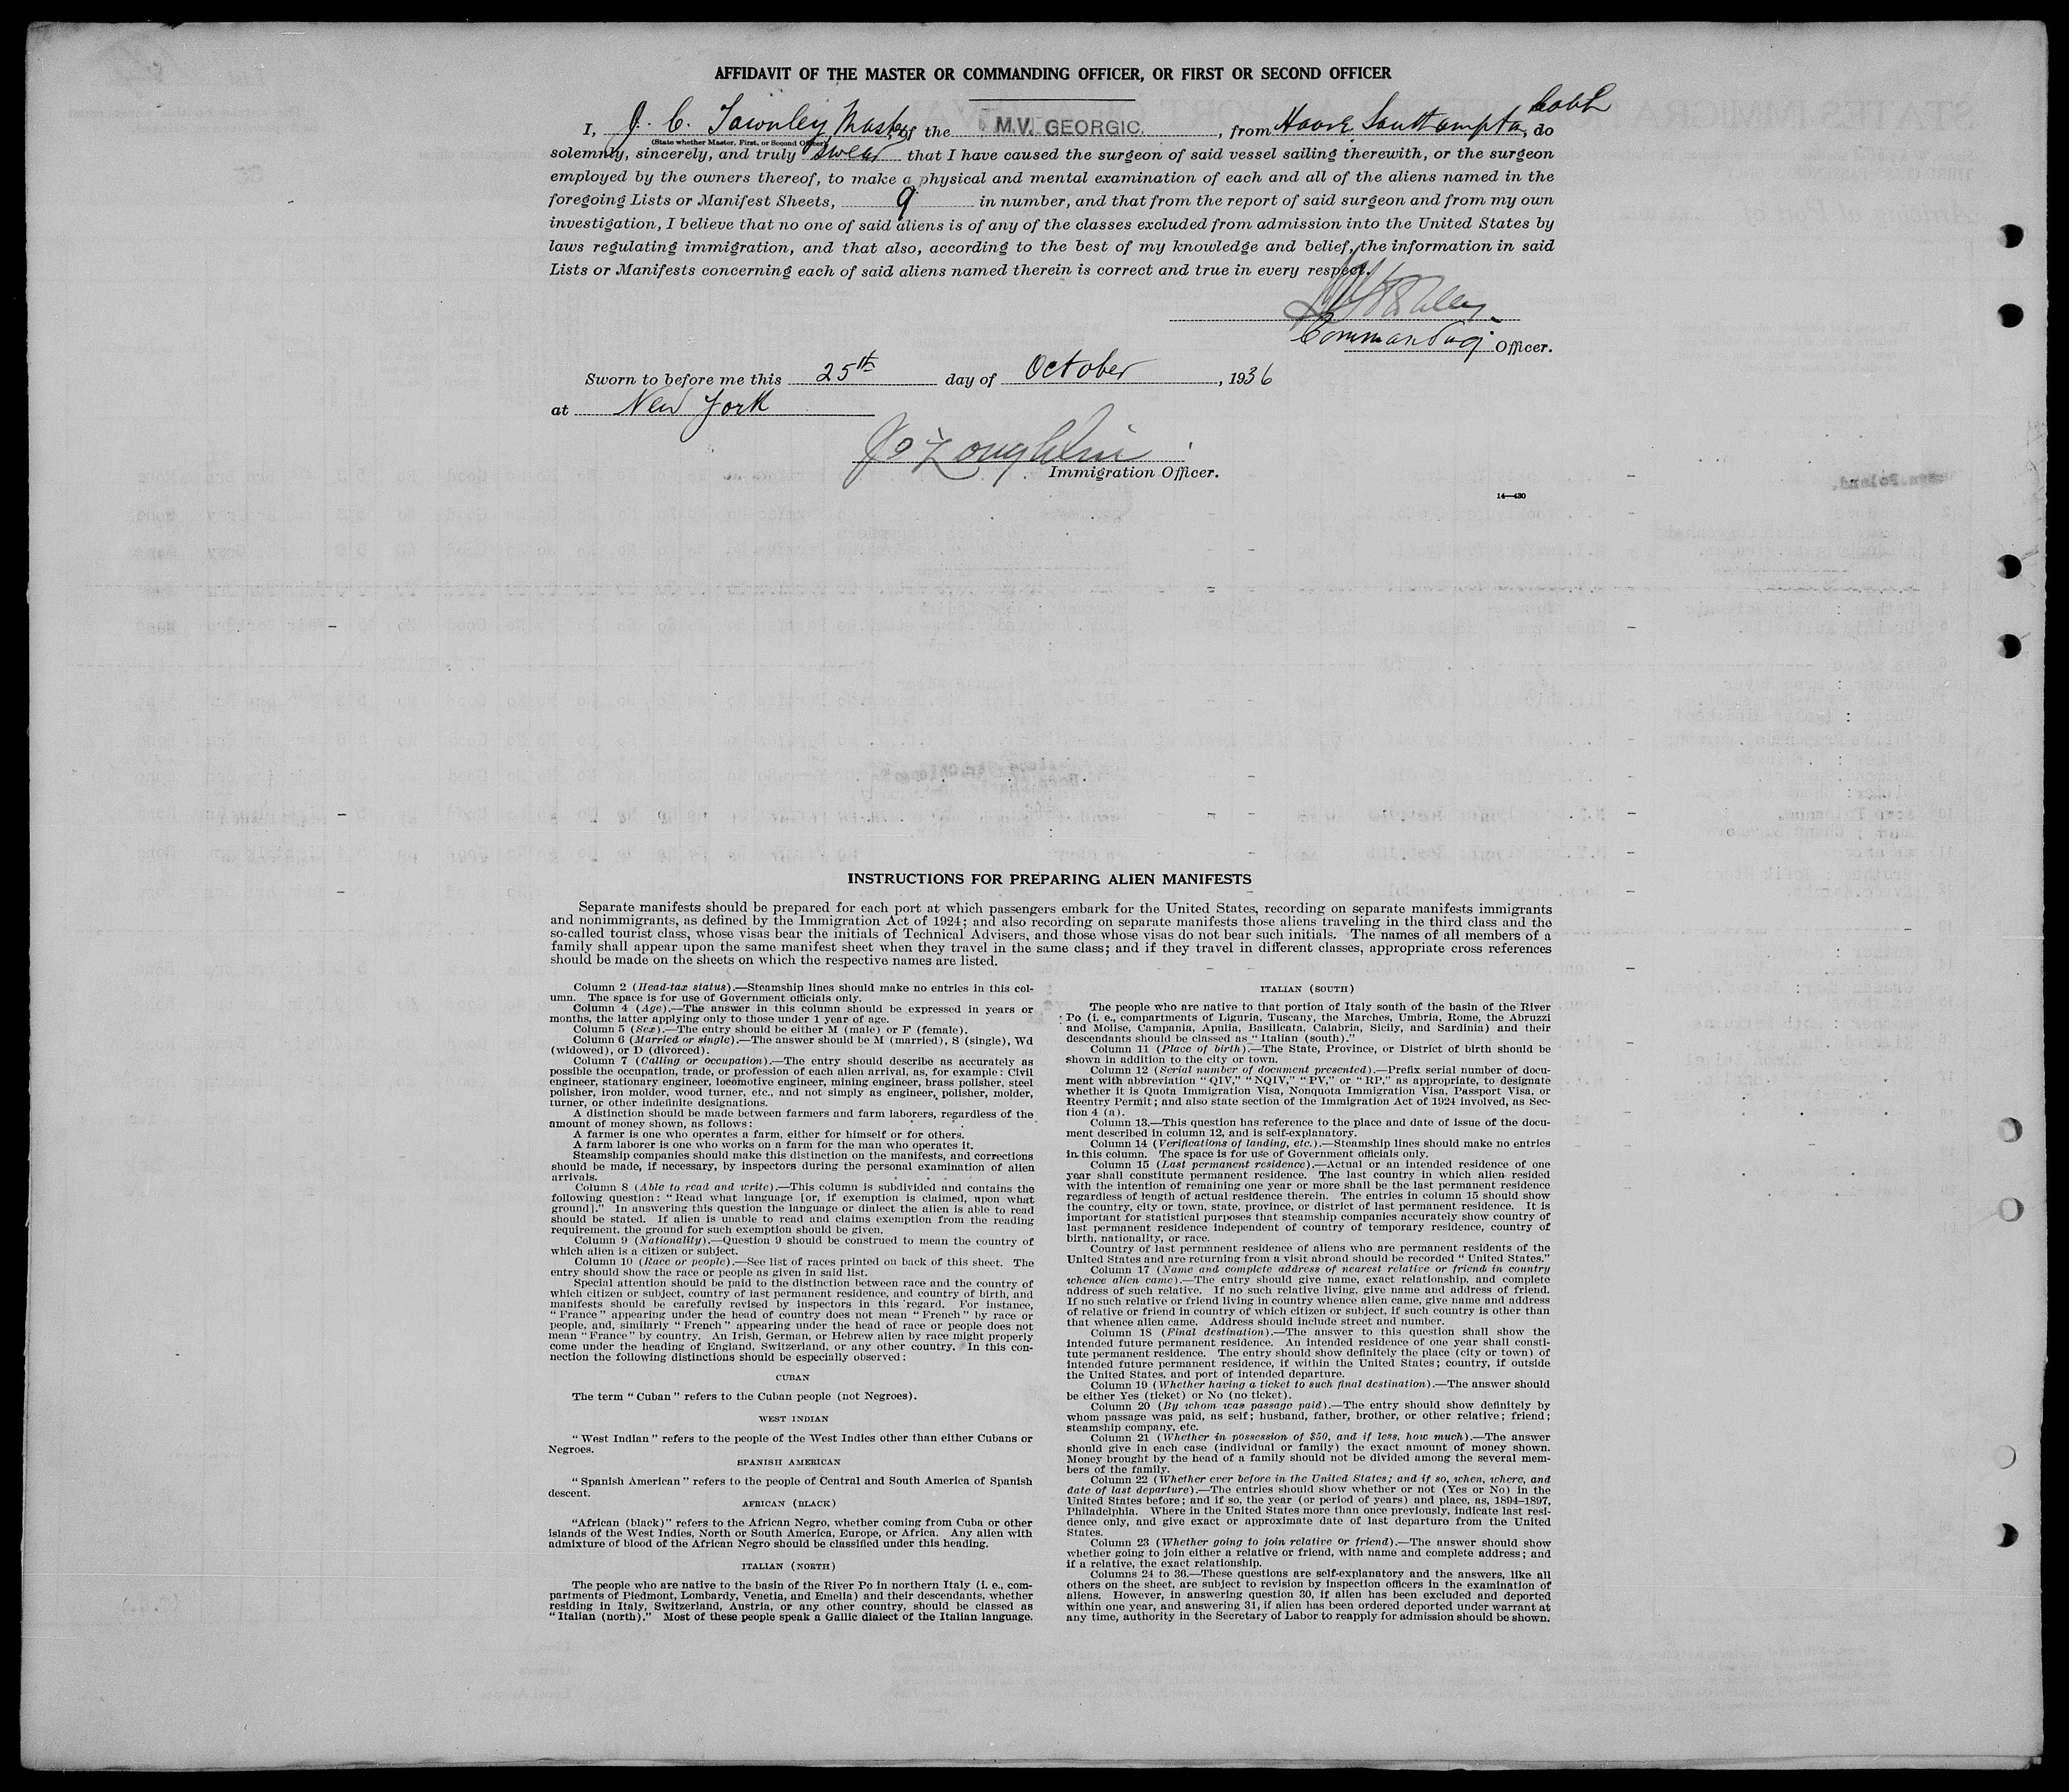 AFFIDAVIT OF THE MASTER OR COMMANDING OFFICER, OR FIRST OR SECOND OFFICER
Cobh
I, J. C. Townley, Master, of the M.V. GEORGIC. , from Havre, Southampton, do
(State whether Master, First, or Second Officer)
solemnly, sincerely, and truly swear that I have caused the surgeon of said vessel sailing therewith, or the surgeon
employed by the owners thereof, to make a physical and mental examination of each and all of the aliens named in the
foregoing Lists or Manifest Sheets, 9 in number, and that from the report of said surgeon and from my own
investigation, I believe that no one of said aliens is of any of the classes excluded from admission into the United States by
laws regulating immigration, and that also, according to the best of my knowledge and belief, the information in said
Lists or Manifests concerning each of said aliens named therein is correct and true in every respect.
Commanding Officer.
Sworn to before me this 25th day of October, 1936
at New York
Immigration Officer.
14—430
INSTRUCTIONS FOR PREPARING ALIEN MANIFESTS
Separate manifests should be prepared for each port at which passengers embark for the United States, recording on separate manifests immigrants
and nonimmigrants, as defined by the Immigration Act of 1924; and also recording on separate manifests those aliens traveling in the third class and the
so-called tourist class, whose visas bear the initials of Technical Advisers, and those whose visas do not bear such initials. The names of all members of a
family shall appear upon the same manifest sheet when they travel in the same class; and if they travel in different classes, appropriate cross references
should be made on the sheets on which the respective names are listed.
Column 2 (Head-tax status).—Steamship lines should make no entries in this col-
umn. The space is for use of Government officials only.
Column 4 (Age).—The answer in this column should be expressed in years or
months, the latter applying only to those under 1 year of age.
Column 5 (Sex).—The entry should be either M (male) or F (female).
Column 6 (Married or single).—The answer should be M (married), S (single), Wd
(widowed), or D (divorced).
Column 7 (Calling or occupation).—The entry should describe as accurately as
possible the occupation, trade, or profession of each alien arrival, as, for example: Civil
engineer, stationary engineer, locomotive engineer, mining engineer, brass polisher, steel
polisher, iron molder, wood turner, etc., and not simply as engineer, polisher, molder,
turner, or other indefinite designations.
A distinction should be made between farmers and farm laborers, regardless of the
amount of money shown, as follows:
A farmer is one who operates a farm, either for himself or for others.
A farm laborer is one who works on a farm for the man who operates it.
Steamship companies should make this distinction on the manifests, and corrections
should be made, if necessary, by inspectors during the personal examination of alien
arrivals.
Column 8 (Able to read and write).—This column is subdivided and contains the
following question: "Read what language [or, if exemption is claimed, upon what
ground]." In answering this question the language or dialect the alien is able to read
should be stated. If alien is unable to read and claims exemption from the reading
requirement, the ground for such exemption should be given.
Column 9 (Nationality).—Question 9 should be construed to mean the country of
which alien is a citizen or subject.
Column 10 (Race or people).—See list of races printed on back of this sheet. The
entry should show the race or people as given in said list.
Special attention should be paid to the distinction between race and the country of
which citizen or subject, country of last permanent residence, and country of birth, and
manifests should be carefully revised by inspectors in this regard. For instance,
"France" appearing under the head of country does not mean "French" by race or
people, and, similarly "French" appearing under the head of race or people does not
mean "France" by country. An Irish, German, or Hebrew alien by race might properly
come under the heading of England, Switzerland, or any other country. In this con-
nection the following distinctions should be especially observed:
CUBAN
The term "Cuban" refers to the Cuban people (not Negroes).
WEST INDIAN
"West Indian" refers to the people of the West Indies other than either Cubans or
Negroes.
SPANISH AMERICAN
"Spanish American" refers to the people of Central and South America of Spanish
descent.
AFRICAN (BLACK)
"African (black)" refers to the African Negro, whether coming from Cuba or other
islands of the West Indies, North or South America, Europe, or Africa. Any alien with
admixture of blood of the African Negro should be classified under this heading.
ITALIAN (NORTH)
The people who are native to the basin of the River Po in northern Italy (i. e., com-
partments of Piedmont, Lombardy, Venetia, and Emelia) and their descendants, whether
residing in Italy, Switzerland, Austria, or any other country, should be classed as
"Italian (north)." Most of these people speak a Gallic dialect of the Italian language.
ITALIAN (SOUTH)
The people who are native to that portion of Italy south of the basin of the River
Po (i. e., compartments of Liguria, Tuscany, the Marches, Umbria, Rome, the Abruzzi
and Molise, Campania, Apulia, Basilicata, Calabria, Sicily, and Sardinia) and their
descendants should be classed as "Italian (south)."
Column 11 (Place of birth).—The State, Province, or District of birth should be
shown in addition to the city or town.
Column 12 (Serial number of document presented).—Prefix serial number of docu-
ment with abbreviation "QIV," "NQIV," "PV," or "RP," as appropriate, to designate
whether it is Quota Immigration Visa, Nonquota Immigration Visa, Passport Visa, or
Reentry Permit; and also state section of the Immigration Act of 1924 involved, as Sec-
tion 4 (a).
Column 13.—This question has reference to the place and date of issue of the docu-
ment described in column 12, and is self-explanatory.
Column 14 (Verifications of landing, etc.).—Steamship lines should make no entries
in this column. The space is for use of Government officials only.
Column 15 (Last permanent residence).—Actual or an intended residence of one
year shall constitute permanent residence. The last country in which alien resided
with the intention of remaining one year or more shall be the last permanent residence
regardless of length of actual residence therein. The entries in column 15 should show
the country, city or town, state, province, or district of last permanent residence. It is
important for statistical purposes that steamship companies accurately show country of
last permanent residence independent of country of temporary residence, country of
birth, nationality, or race.
Country of last permanent residence of aliens who are permanent residents of the
United States and are returning from a visit abroad should be recorded "United States."
Column 17 (Name and complete address of nearest relative or friend in country
whence alien came).—The entry should give name, exact relationship, and complete
address of such relative. If no such relative living, give name and address of friend.
If no such relative or friend living in country whence alien came, give name and address
of relative or friend in country of which citizen or subject, if such country is other than
that whence alien came. Address should include street and number.
Column 18 (Final destination).—The answer to this question shall show the
intended future permanent residence. An intended residence of one year shall consti-
tute permanent residence. The entry should show definitely the place (city or town) of
intended future permanent residence, if within the United States; country, if outside
the United States, and port of intended departure.
Column 19 (Whether having a ticket to such final destination).—The answer should
be either Yes (ticket) or No (no ticket).
Column 20 (By whom was passage paid).—The entry should show definitely by
whom passage was paid, as self; husband, father, brother, or other relative; friend;
steamship company, etc.
Column 21 (Whether in possession of $50, and if less, how much).—The answer
should give in each case (individual or family) the exact amount of money shown.
Money brought by the head of a family should not be divided among the several mem-
bers of the family.
Column 22 (Whether ever before in the United States; and if so, when, where, and
date of last departure).—The entries should show whether or not (Yes or No) in the
United States before; and if so, the year (or period of years) and place, as, 1894–1897,
Philadelphia. Where in the United States more than once previously, indicate last resi-
dence only, and give exact or approximate date of last departure from the United
States.
Column 23 (Whether going to join relative or friend).—The answer should show
whether going to join either a relative or friend, with name and complete address; and
if a relative, the exact relationship.
Columns 24 to 36.—These questions are self-explanatory and the answers, like all
others on the sheet, are subject to revision by inspection officers in the examination of
aliens. However, in answering question 30, if alien has been excluded and deported
within one year, and answering 31, if alien has been ordered deported under warrant at
any time, authority in the Secretary of Labor to reapply for admission should be shown.